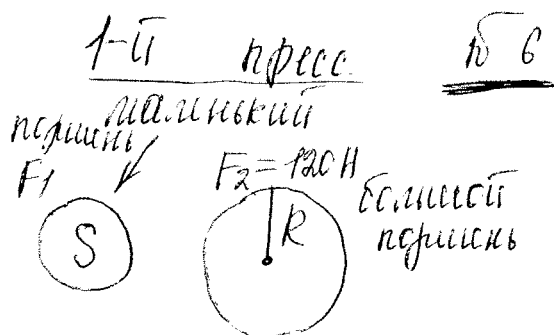 1-й пресс № 6
маленький
поршень
F₁
F₂ = 120 Н
большой
поршень
S
R